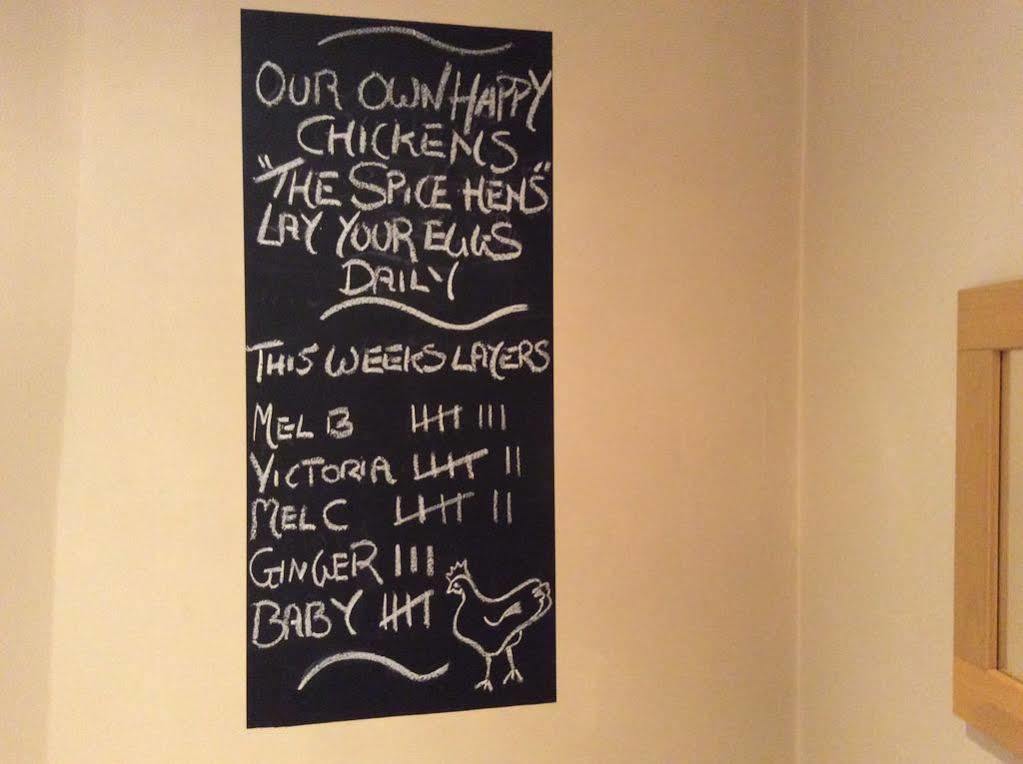 OUR OWN HAPPY
CHICKENS
"THE SPICE HENS"
LAY YOUR EGGS
DAILY
THIS WEEKS LAYERS
MEL B 𝍸 III
VICTORIA 𝍸 II
MEL C 𝍸 II
GINGER III
BABY 𝍸